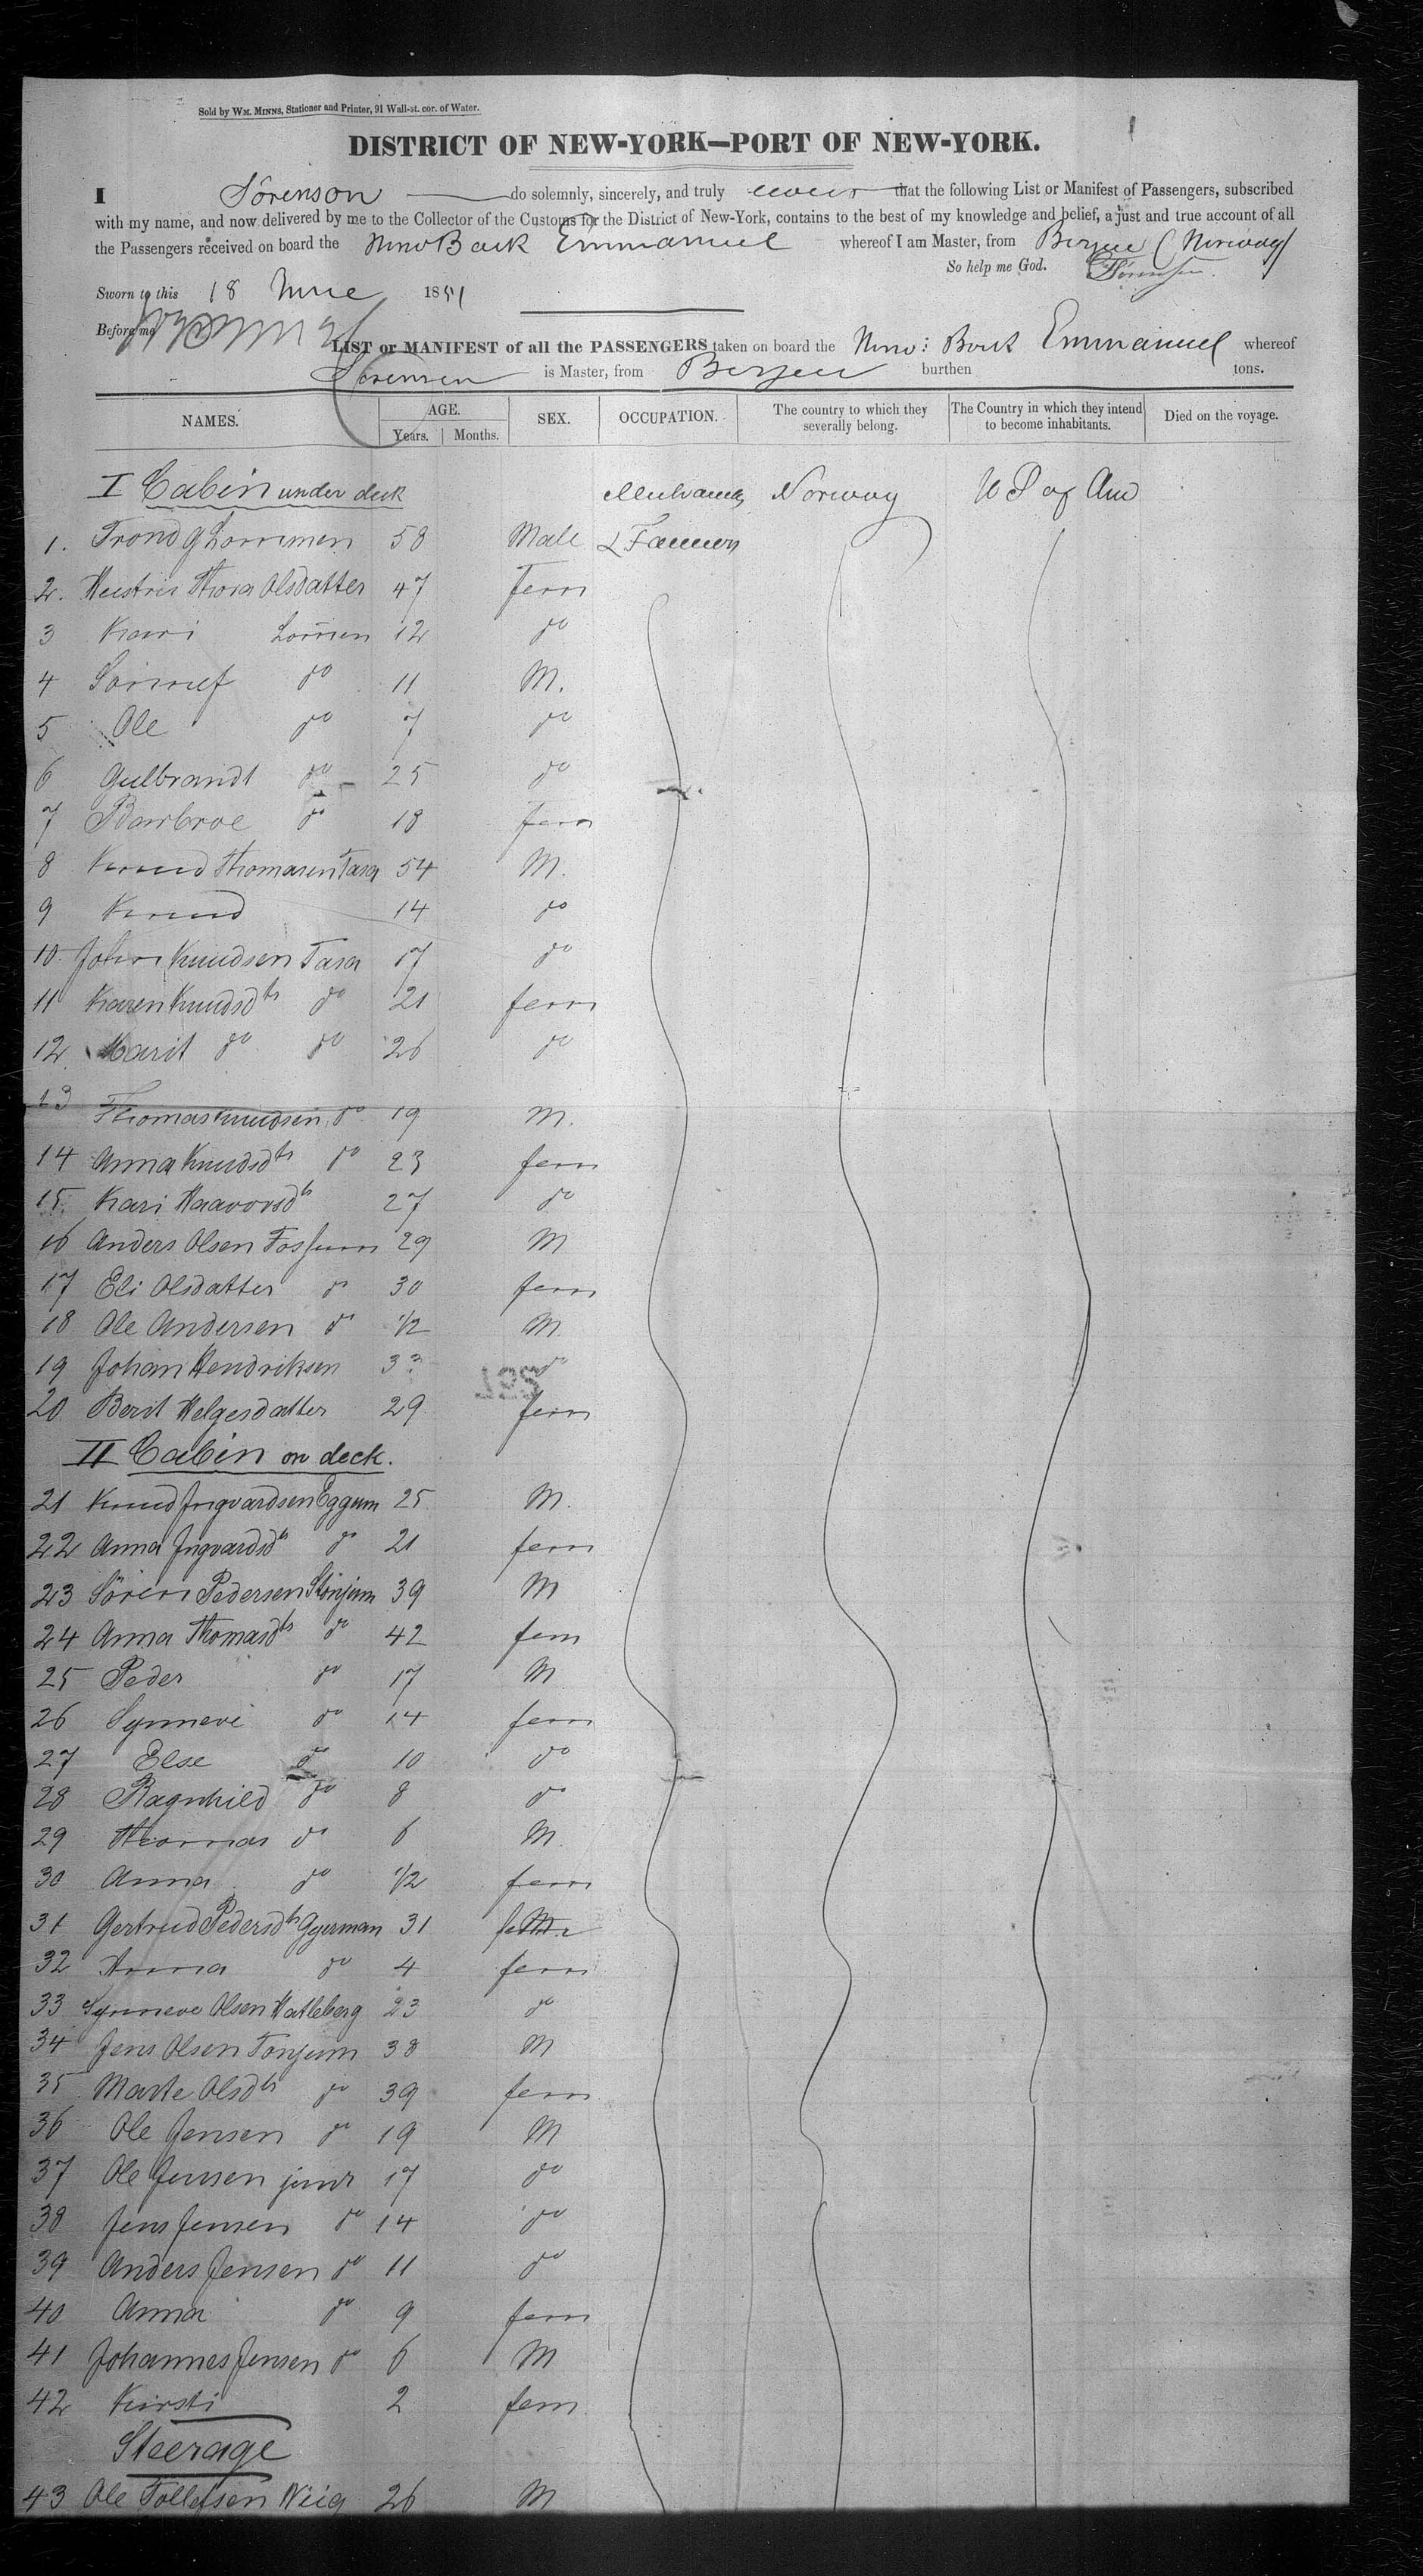 Sold by WM. MINNS, Stationer and Printer, 91 Wall-st. cor. of Water.
DISTRICT OF NEW-YORK—PORT OF NEW-YORK.
I Sörenson do solemnly, sincerely, and truly that the following List or Manifest of Passengers, subscribed
with my name, and now delivered by me to the Collector of the Customs for the District of New-York, contains to the best of my knowledge and belief, a just and true account of all
the Passengers received on board the Bark Emmanuel whereof I am Master, from Bergen (Norway)
So help me God.
Sworn to this 18 June 1851
Before me
LIST or MANIFEST of all the PASSENGERS taken on board the Bark Emmanuel whereof
Sorensen is Master, from Bergen burthen tons.
NAMES. AGE. Years. Months. SEX. OCCUPATION. The country to which they severally belong. The Country in which they intend to become inhabitants. Died on the voyage.
I Cabin under deck Norway U S of Am
1. Trond G Lommen 58 Male & Farmers
2. Hustru Thora Olsdatter 47 Fem
3 Kari Lom̄en 12 do
4 do 11 M.
5 Ole do 7 do
6 Gulbrandt do 25 do
7 Barbroe do 18 fem
8 Knud Thomasen Tasa 54 M.
9 Knud 14 do
10. John Knudsen Tasa 17 do
11 Karen Knudsdtr do 21 fem
12. Marit do do 26 do
13 Thomas Knudsen do 19 M.
14 Anna Knudsdtr do 23 fem
15. Kari Haavorsdtr 27 do
16 Anders Olsen Fossum 29 M
17 Eli Olsdatter do 30 fem
18 Ole Andersen do 1/2 M
19 Johan Hendriksen 33 do
20 Berit Helgesdatter 29 fem
II Cabin on deck.
21 Knud Ingvardsen Eggum 25 M.
22 Anna Ingvardsdtr do 21 fem
23 Sören Pedersen Stönjum 39 M
24 Anna Thomasdtr do 42 fem
25 Peder do 17 M
26 Synneve do 14 fem
27 Else do 10 do
28 Ragnhild do 8 do
29 Thomas do 6 M.
30 Anna do 1/2 fem
31 Gertrud Pedersdtr Gjerman 31 fem
32 Anna do 4 fem
33 Synneve Olsen Hatleberg 23 do
34 Jens Olsen Tonjum 38 M
35 Marte Olsdtr do 39 fem
36 Ole Jensen do 19 M
37 Ole Jensen junr 17 do
38 Jens Jensen do 14 do
39 Anders Jensen do 11 do
40 Anna do 9 fem
41 Johannes Jensen do 6 M
42 Kirsti 2 fem
Steerage
43 Ole Tollefsen Wiig 26 M